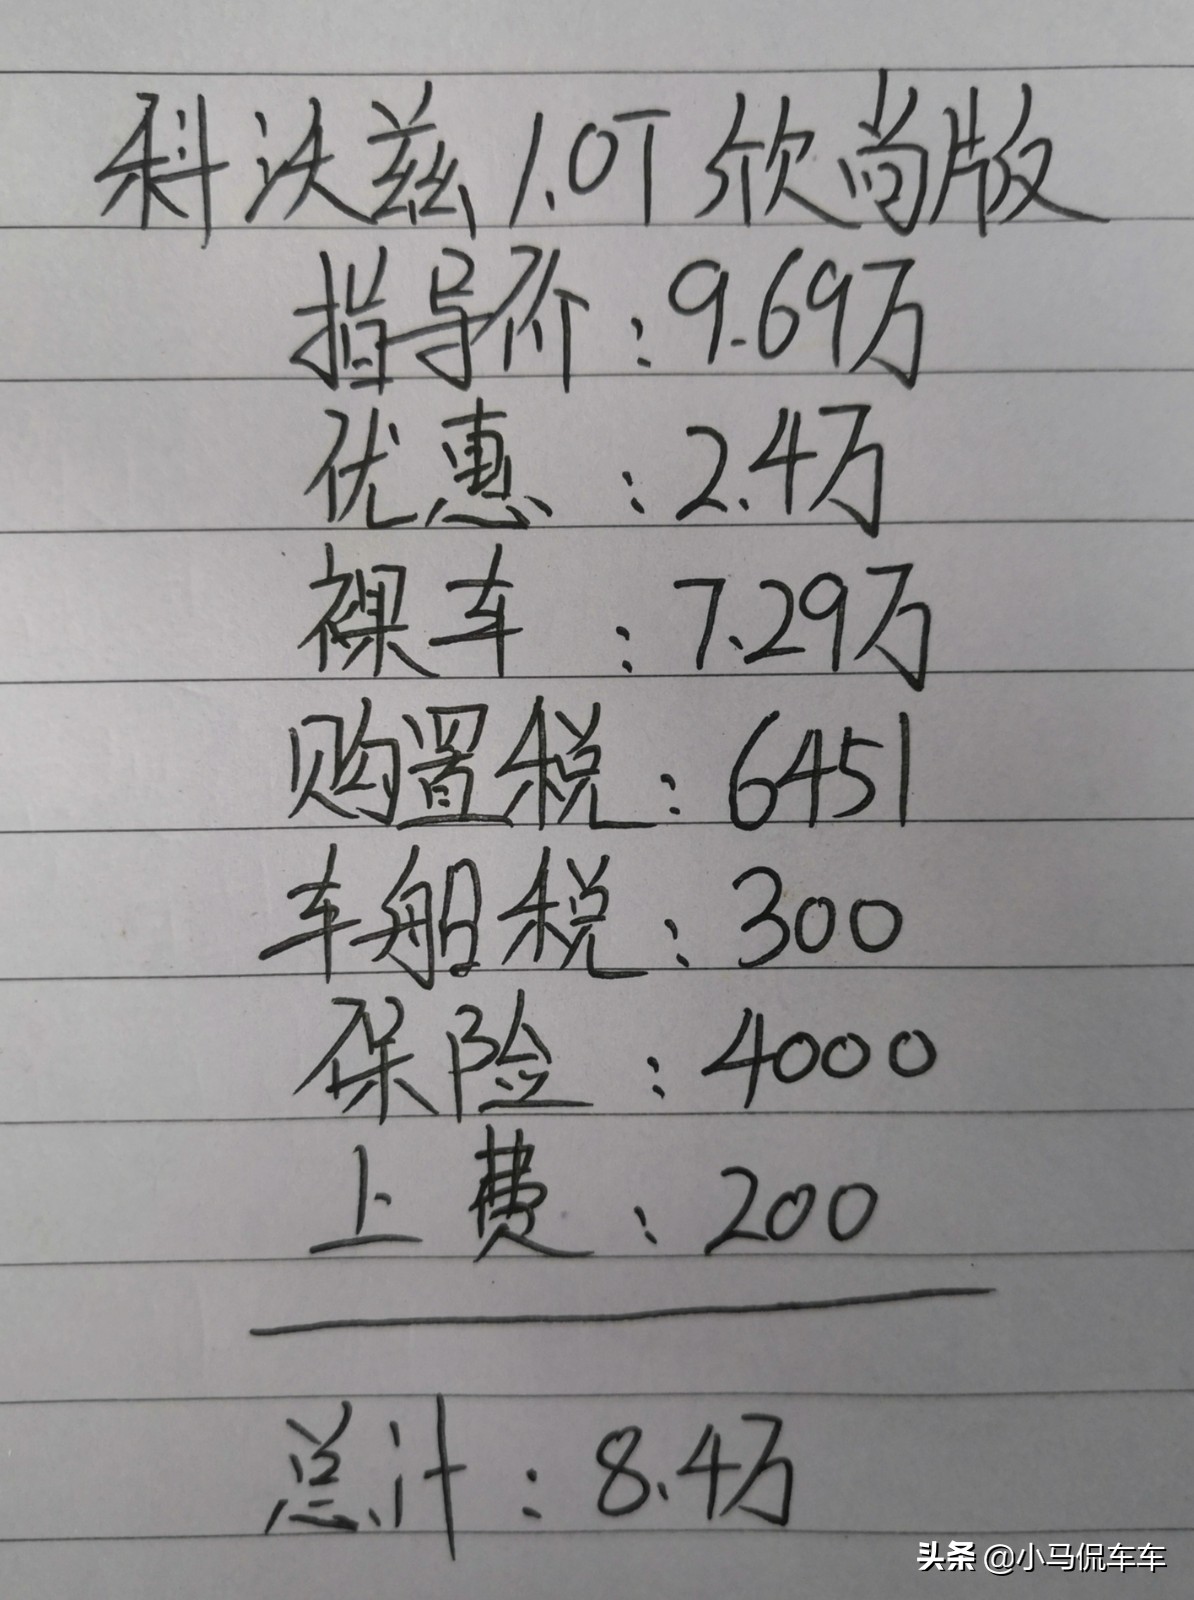 科沃兹1.0T欣尚版
指导价:9.69万
优惠:2.4万
裸车:7.29万
购置税:6451
车船税:300
保险:4000
上费:200
总计:8.4万
头条 @小马侃车车